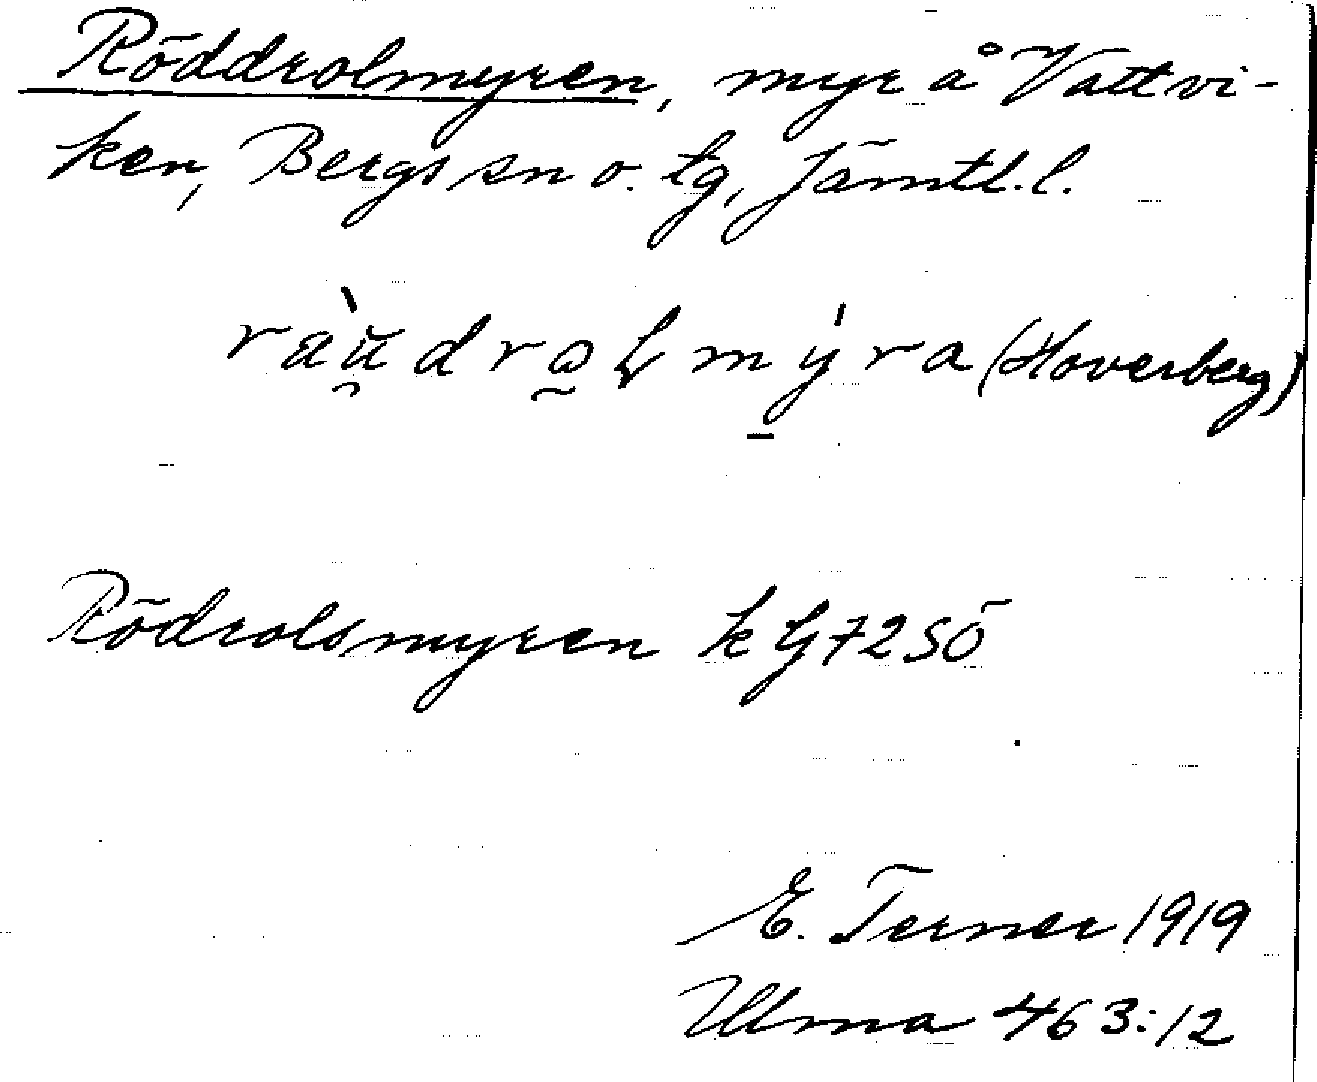 Röddrolmyren, myr å Vattvi-
ken, Bergs sn o. tg, Jämtl. l.
ràu̯dro̰ɫmýra (Hoverberg)
Rödrolsmyren k G 72 SÖ
E. Terner 1919
Ulma 463:12